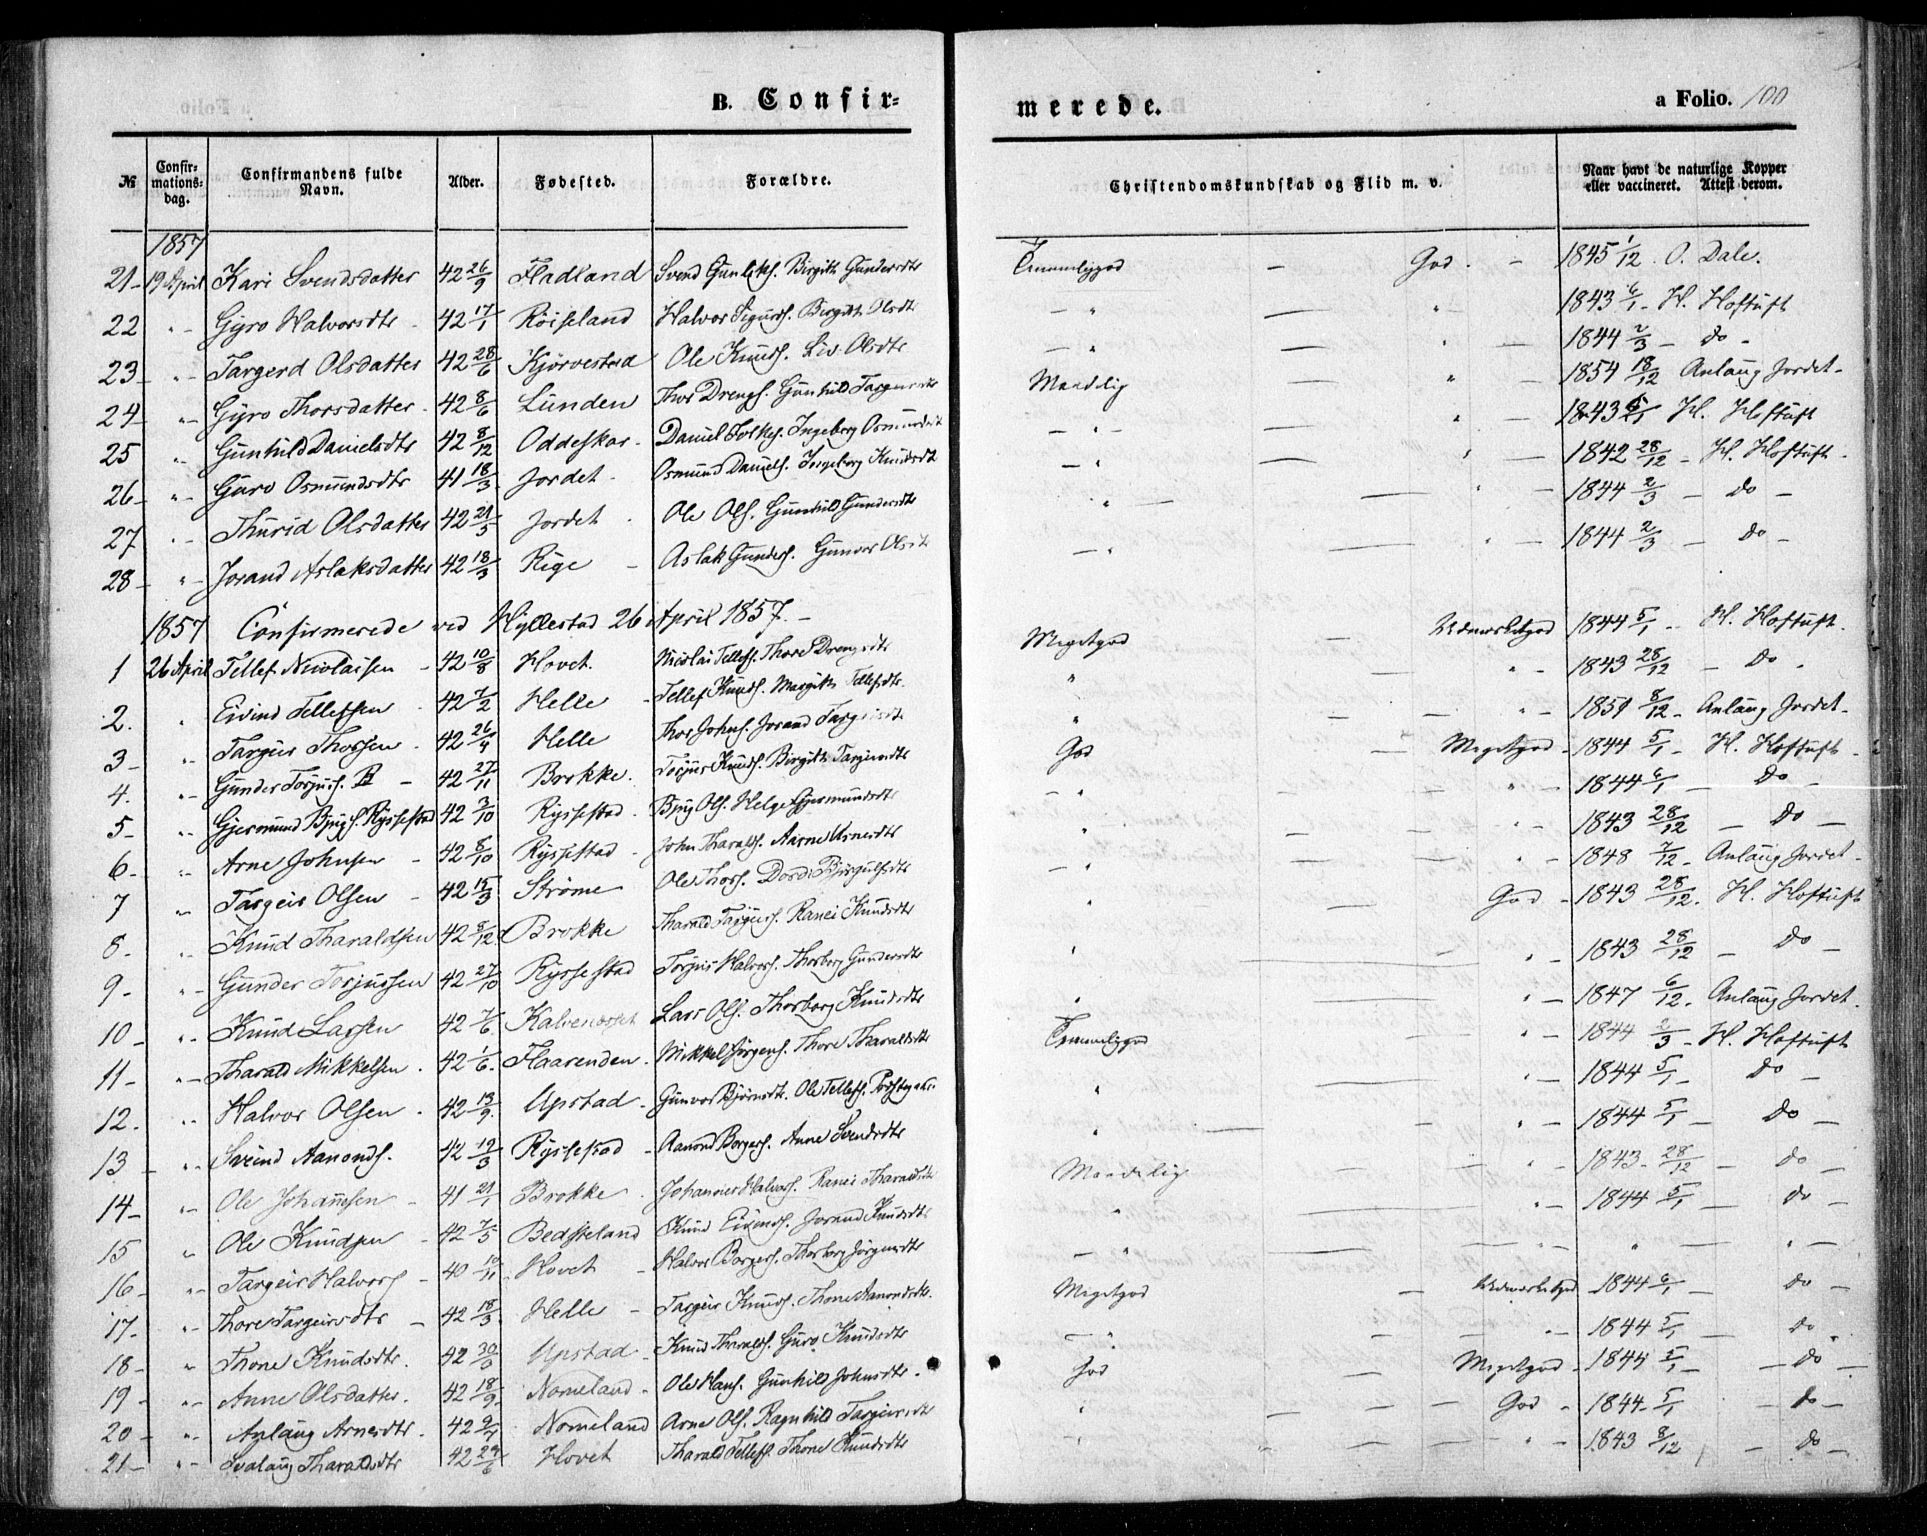 B. Confir-
merede.
a Folio. 100
№ Confir-mations-dag. Confirmandens fulde Navn. Alder. Fødested. Forældre. Christendomskundskab og Flid m. v. Naar havt de naturlige Kopper eller vaccineret. Attest derom.
1857
21- 19 April Kari Svendsdatter 42 26/9 Fladland Svend Gunleks. Birgith Gundersdtr Temmeliggod — God. - 1845 1/12. O. Dale.
22 " - Gyro Halvorsdtr - 42 17/1 Röiseland Halvor Sigurds. Birgith Olsdtr - " — " - 1843 6/1. H. Hoftuft
23- " - Targerd Olsdatter 42 28/6 Kjörvestad Ole Knuds. Liv. Olsdtr - " — " - 1844 2/3 - do -
24- " - Gyro Thorsdatter - 42 8/6 Lunden Thor Drengs. Gunhild Targeirsdtr Maadelig — " - 1854 18/12 Anlaug Jordet-
25 " Gunhild Danielsdtr 42 8/12 Oddeskar - Daniel Folkes. Ingeborg Osmundsdtr - " - — " - 1843 5/1 H. Hoftuft
26- " - Guro Osmundsdtr 41 18/3 Jordet - Osmund Daniels. Ingeborg Knudsdtr - " — " - 1842 28/12 - H. Hoftuft.
27 " - Thurid Olsdatter 42 21/5 Jordet - Ole Ols. Gunhild Gundersdtr " — — " - 1844 2/3 - do -
28- " - Jorand Aslaksdatter 42 18/3 Rige - Aslak Gunders. Gunvor Olsdtr - " — " - 1844 2/3 - do -
1857 Confirmerede ved Hyllestad 26 April 1857. -
1 26 April Tellef Nicolaisen - 42 10/8 Hovet. Nicolai Tellefs. Thore Drengsdtr Megetgod - Udmærketgod 1844 5/1 - H. Hoftuft.
2. " Eivind Tellefsen - 42 7/2 Helle - Tellef Knuds. Margith Tellefsdtr. " — " - 1843 28/12 - do.
3- " Targeir Thorsen - 42 26/4 Helle Thor Johns. Jorand Targeirsdtr " — " - 1851 8/12 - Anlaug Jordet-
4. " - Gunder Torjus. - 42 27/11 Brokke. Torjus Knuds. Birgith Targeirsdtr God — Megetgod - 1844 5/1 - H. Hoftuft -
5- " - Gjermund Bjugs. Ryssestad 42 3/10 Ryssestad. Bjug Ols. Helge Gjermundsdtr - " — " - 1844 6/1 - do -
6- " - Arne Johnsen - 42 8/10 Ryssestad - John Tharalds. Aarne Arnesdtr " — " - 1843 28/12 - do -
7 " Targeir Olsen - 42 15/3 Strøme Ole Thors. Dorde Björgulfsdtr - " — " - 1848 7/12 - Anlaug Jordet-
8- " - Knud Tharaldsen 42 8/12 Brokke Tharald Torjus. Ranei Knudsdtr " — God - 1843 28/12. H. Hoftuft
9- " - Gunder Torjussen 42 27/10 Ryssestad Torjus Halvors. Thorborg Gundersdtr " — " - 1843 28/12 - do -
10- " - Knud Larsen 42 7/6 Lars Ols. Thorborg Knudsdtr " — " - 1847 6/12. Anlaug Jordet.
11- " - Tharald Mikkelsen. 42 1/6. Flaarenden. Mikkel Jörgens. Thore Tharaldsdtr Temmeliggod " - 1844 2/3 - H. Hoftuft
12. " - Halvor Olsen - 42 13/9. Upstad - Gunvor Björnsdtr. Ole Tellefs. " — " - 1844 5/1 - do -
13 - " - Sveind Aanonds. 42 19/3 Ryssestad - Aanond Borgers. Anne Svendsdtr " — " - 1844 5/1 - do -
14- " - Ole Johannsen - 41 21/1 Brokke. Johannes Halvors. Ranei Tharaldsdtr Maadelig " 1843 - 28/12 - do -
15 " Ole Knudsen - 42 7/5 Bedsteland Knud Eivinds. Jorand Knudsdtr " — " - 1844 5/1 - do -
16- " - Targeir Halvors - 40 10/11 Hovet - Halvor Borgers. Thorborg Jörgensdtr - " — " - " - " -
17- " - Thore Targeirsdtr - 42 18/3 Helle - Targeir Knuds. Thone Aanondsdtr. Megetgod - Udmærketgod 1844 6/1 - do -
18- " Thone Knudsdtr. 42 30/9 Upstad - Knud Tharalds. Guro Knudsdtr - " — " - 1844 5/1 - do.
19- " - Anne Olsdatter. 42 18/9. Nomeland - Ole Hans. Gunhild Johnsdtr. God — Megetgod - 1844 5/1 - do -
20- " - Anlaug Arnesdtr. 42 9/1 Nomeland Arne Ols. Ragnhild Targeirsdtr " — God - 1844 - 5/1 - do -
21- " - Svalaug Tharaldsdtr 42 24/6 Hovet Tharald Tellefs. Thone Knudsdtr " — " - 1843 8/12 - do -